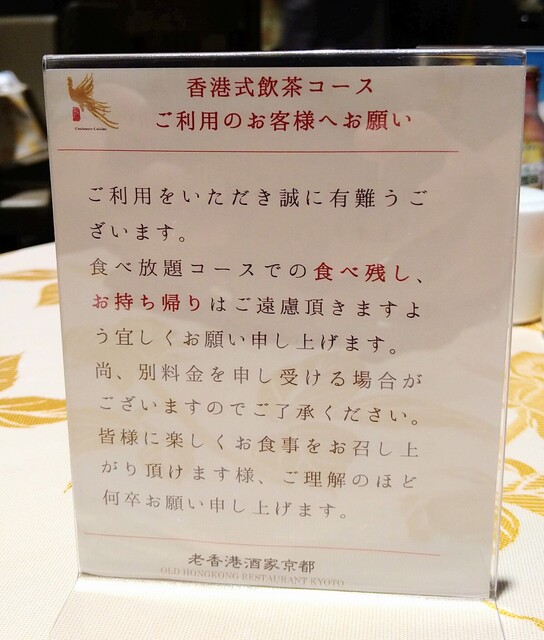 香港式飲茶コース
ご利用のお客様へお願い
Cantonese Cuisine
ご利用をいただき誠に有難うご
ざいます。
食べ放題コースでの食べ残し、
お持ち帰りはご遠慮頂きますよ
う宜しくお願い申し上げます。
尚、別料金を申し受ける場合が
ございますのでご了承ください。
皆様に楽しくお食事をお召し上
がり頂けます様、ご理解のほど
何卒お願い申し上げます。
老香港酒家京都
OLD HONGKONG RESTAURANT KYOTO